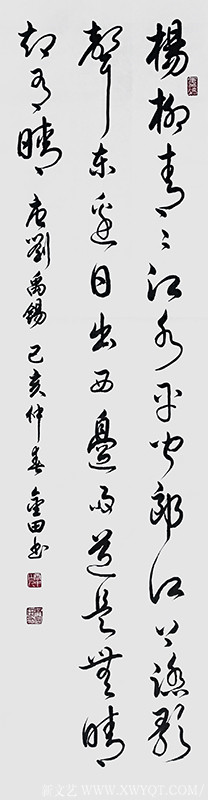 楊柳青〻江水平聞郎江上唱歌
聲東邊日出西邊雨道是無晴
却有晴
唐劉禹錫 己亥仲春 金田書
新文艺 WWW.XWYQT.COM